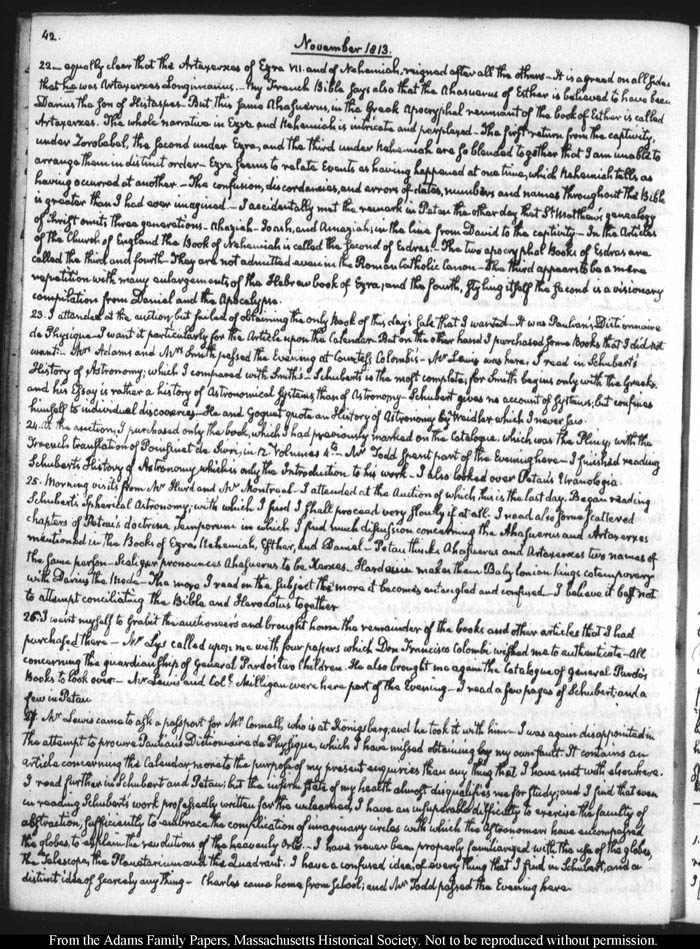 42.
November 1813.
22 — equally clear that the Artaxerxes of Ezra VII. and of Nehemiah, reigned after all the others — It is agreed on all sides
that he was Artaxerxes Longimanus. — My French Bible says also that the Ahasuerus of Esther is believed to have been
Darius the Son of Histaspes. But this same Ahasuerus, in the Greek Apocryphal remnant of the book of Esther is called
Artaxerxes. The whole narrative in Ezra and Nehemiah is intricate and perplexed — The first return from the captivity,
under Zorobabel, the second under Ezra, and the third under Nehemiah are so blended together that I am unable to
arrange them in distinct order — Ezra seems to relate Events as having happened at one time, which Nehemiah tells, as
having occurred at another. — The confusion, discordancies, and errors of dates, numbers and names throughout the Bible
is greater than I had ever imagined. — I accidentally met the remark in Petau the other day that St. Matthew's genealogy
of Christ omits three generations — Ahaziah — Joash, and Amaziah; in the line from David to the captivity — In the Articles
of the Church of England the Book of Nehemiah is called the second of Esdras. The two apocryphal Books of Esdras are
called the third and fourth — They are not admitted even in the Roman Catholic Canon — The third appears to be a mere
repetition with many enlargements of the Hebrew book of Ezra; and the fourth, styling itself the second is a visionary
compilation from Daniel and the Apocalypse.
23. I attended at the auction, but failed of obtaining the only book of this day's sale that I wanted — It was Paulian's Dictionnaire
de Physique — I want it particularly for the Article upon the Calendar — But on the other hand I purchased some Books that I did not
want. — Mrs. Adams and Mrs. Smith passed the Evening at Countess Colombi's — Mr. Lewis was here. I read in Schubert's
History of Astronomy; which I compared with Smith's — Schubert's is the most complete; for Smith begins only with the Greeks,
and his Essay is rather a history of Astronomical Systems than of Astronomy — Schubert gives no account of systems; but confines
himself to individual discoveries — He and Goguet quote an History of Astronomy by Weidler which I never saw.
24. At the auction, I purchased only the book, which I had previously marked on the Catalogue, which was the Pliny, with the
French translation of Poinsinet de Sivri, in 12 Volumes 4to. — Mr. Todd spent part of the Evening here — I finished reading
Schubert's History of Astronomy which is only the Introduction to his work — I also looked over Petau's Uranologia.
25. Morning visits from Mr. Hurd and Mr. Montreal — I attended at the Auction of which this is the last day. Began reading
Schubert's Spherical Astronomy; with which I find I shall proceed very slowly if at all. I read also some scattered
chapters of Petau's doctrina Temporum in which I find much discussion concerning the Ahasuerus and Artaxerxes
mentioned in the Books of Ezra, Nehemiah, Esther, and Daniel — Petau thinks Ahasuerus and Artaxerxes two names of
the same person — Scaliger pronounces Ahasuerus to be Xerxes. makes them Babylonian kings cotemporary
with Darius the Mede — The more I read on the subject the more it becomes entangled and confused — I believe it best not
to attempt conciliating the Bible and Herodotus together
26. I went myself to Grabit the auctioneer's and brought home the remainder of the books and other articles that I had
purchased there — Mr. Lys called upon me with four papers which Don Francisco Colombi wished me to authenticate — All
concerning the guardianship of General Pardo's two children. He also brought me again the Catalogue of General Pardo's
Books to look over — Mr. Lewis and Coll. Milligan were here part of the Evening — I read a few pages of Schubert, and a
few in Petau
27. Mr. Lewis came to ask a passport for Mr. Connell, who is at Königsberg; and he took it with him — I was again disappointed in
the attempt to procure Paulian's Dictionnaire de Physique, which I have missed obtaining by my own fault. It contains an
article concerning the Calendar more to the purpose of my present enquiries than any thing that I have met with elsewhere.
I read further in Schubert and Petau; but the infirm state of my health almost disqualifies me for study; and I find that even
in reading Schubert's work professedly written for the unlearned, I have an insuperable difficulty to exercise the faculty of
abstraction, sufficiently to embrace the complication of imaginary circles with which the Astronomers have encompassed
the globes, to explain the revolutions of the heavenly orbs. — I have never been properly familiarized with the use of the globes,
the Telescope, the Planetarium and the Quadrant. I have a confused idea, of every thing that I find in Schubert, and a
distinct idea of scarcely any thing — Charles came home from School; and Mr. Todd passed the Evening here.
From the Adams Family Papers, Massachusetts Historical Society. Not to be reproduced without permission.